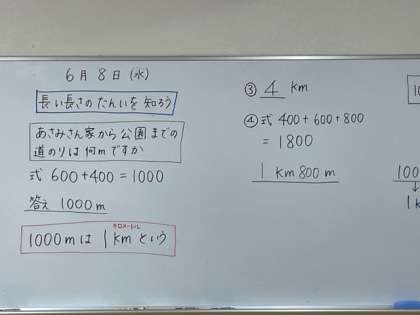 6月8日(水)
長い長さのたんいを知ろう
あさみさん家から公園までの
道のりは何mですか
式 600+400=1000
答え 1000m
キロメートル
1000mは 1kmという
③ 4 km
④式 400+600+800
=1800
1km800m
100
↓
1k